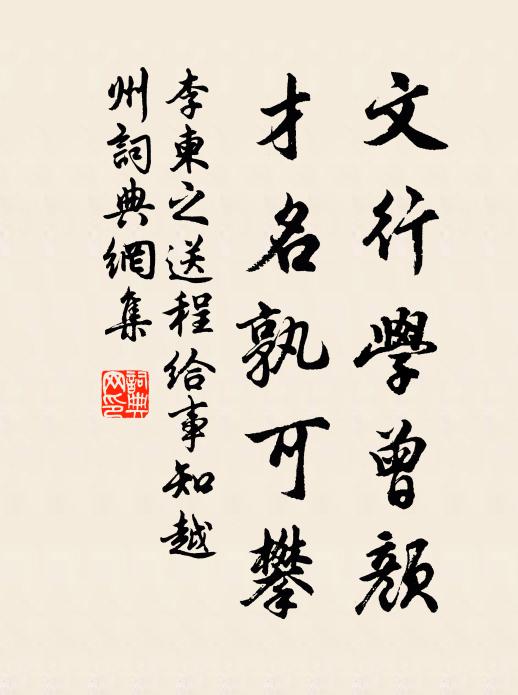 文行學曾顏
才名孰可攀
李東之送程給事知越
州詞典網集
詞典
网印